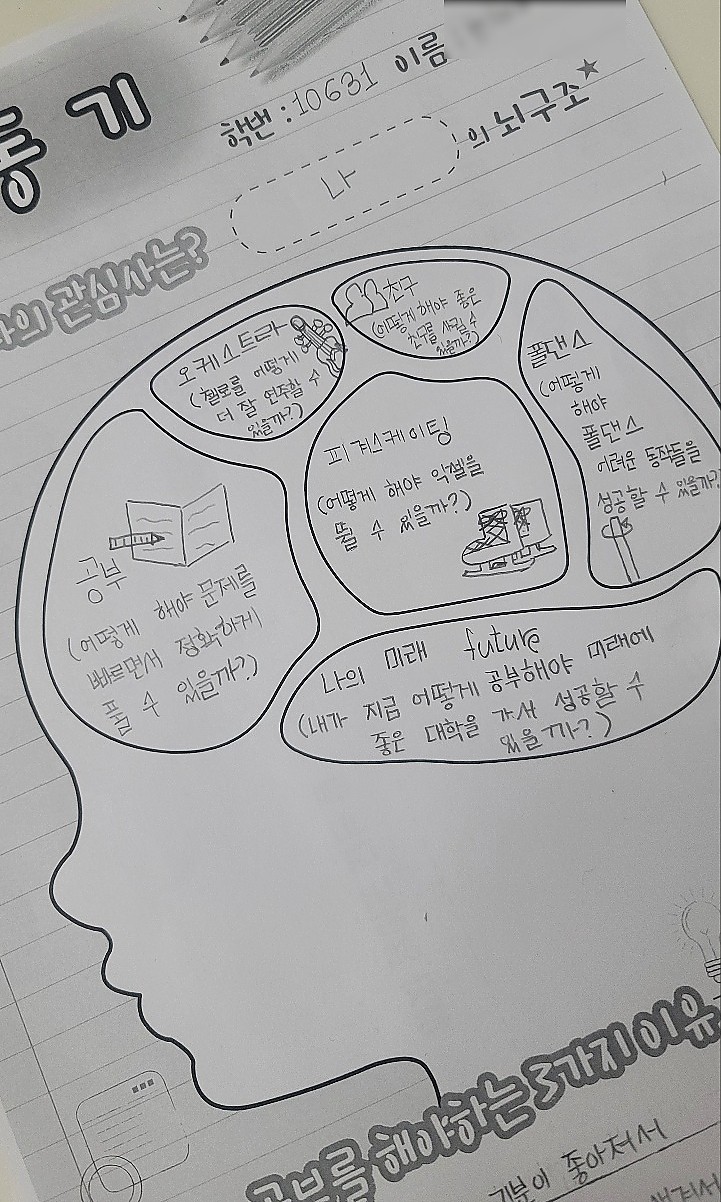 동기
학번 : 10631 이름
나 의 뇌구조
나의 관심사는?
친구
(어떻게 해야 좋은
친구를 사귈 수
있을까?)
오케스트라
(첼로를 어떻게
더 잘 연주할 수
있을까?)
폴댄스
(어떻게
해야
폴댄스
어려운 동작들을
성공할 수 있을까?
피겨스케이팅
(어떻게 해야 악셀을
뛸 수 있을까?)
공부
(어떻게 해야 문제를
빠르면서 정확하게
풀 수 있을까?)
나의 미래 future
(내가 지금 어떻게 공부해야 미래에
좋은 대학을 가서 성공할 수
있을까?)
공부를 해야하는 3가지 이유
기분이 좋아져서